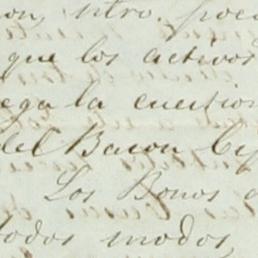 que los activos
ega la cuestion
del Bacon
Los Bonos
todos modos